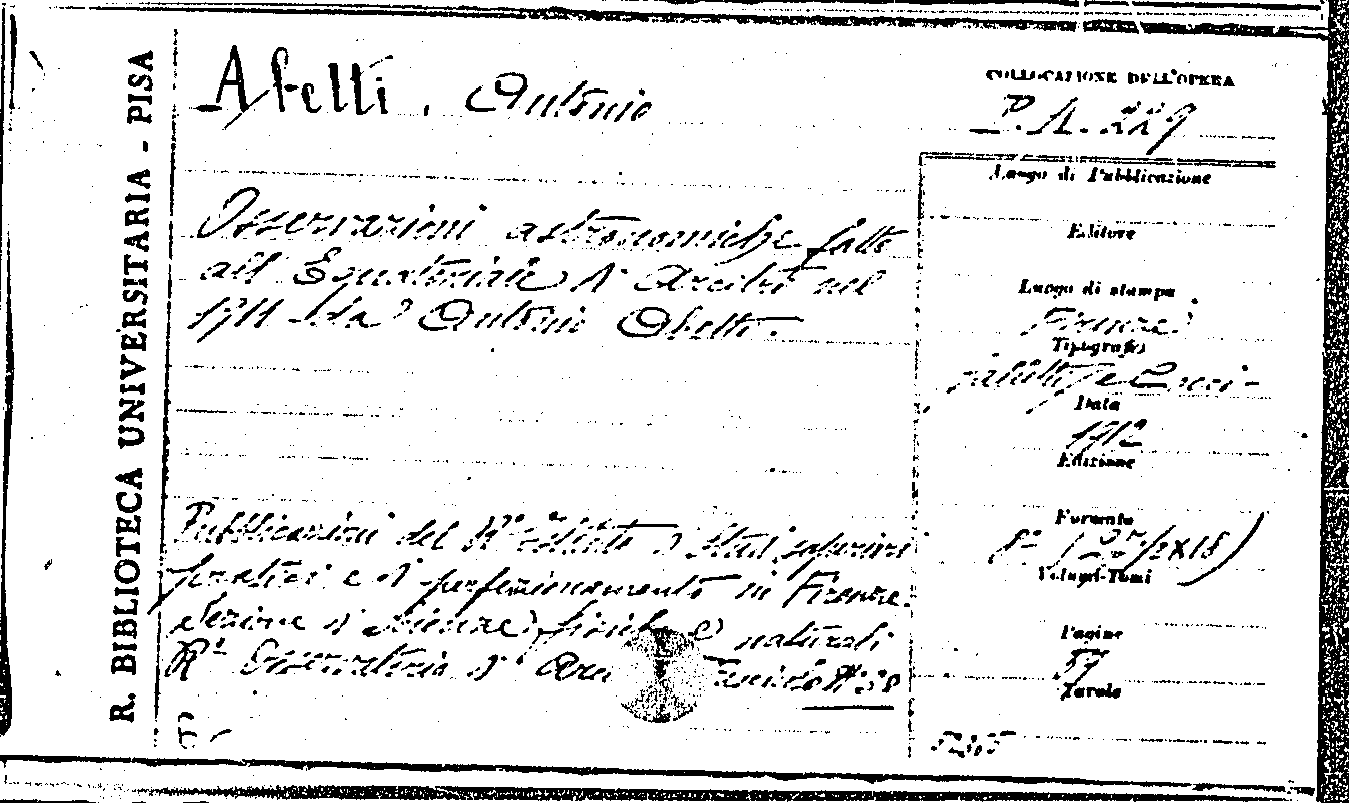 R. BIBLIOTECA UNIVERSITARIA - PISA
Abetti. Antonio
COLLOCAZIONE DELL'OPERA
P. A. 229
Osservazioni astronomiche fatte
all' Equatoriale d' Arcetri nel
1911 da Antonio Abetti.
Luogo di Pubblicazione
Editore
Luogo di stampa
Firenze
Tipografo
Galletti e Cocci
Data
1912
Edizione
Formato
8º (27/2x18)
Volumi-Tomi
Pagine
57
Tavole
Pubblicazioni del Rº Istituto di Studi superiori
pratici e di perfezionamento in Firenze.
Sezione di Scienze fisiche e naturali
Rº Osservatorio d' Arce Fascicolo Nº 30